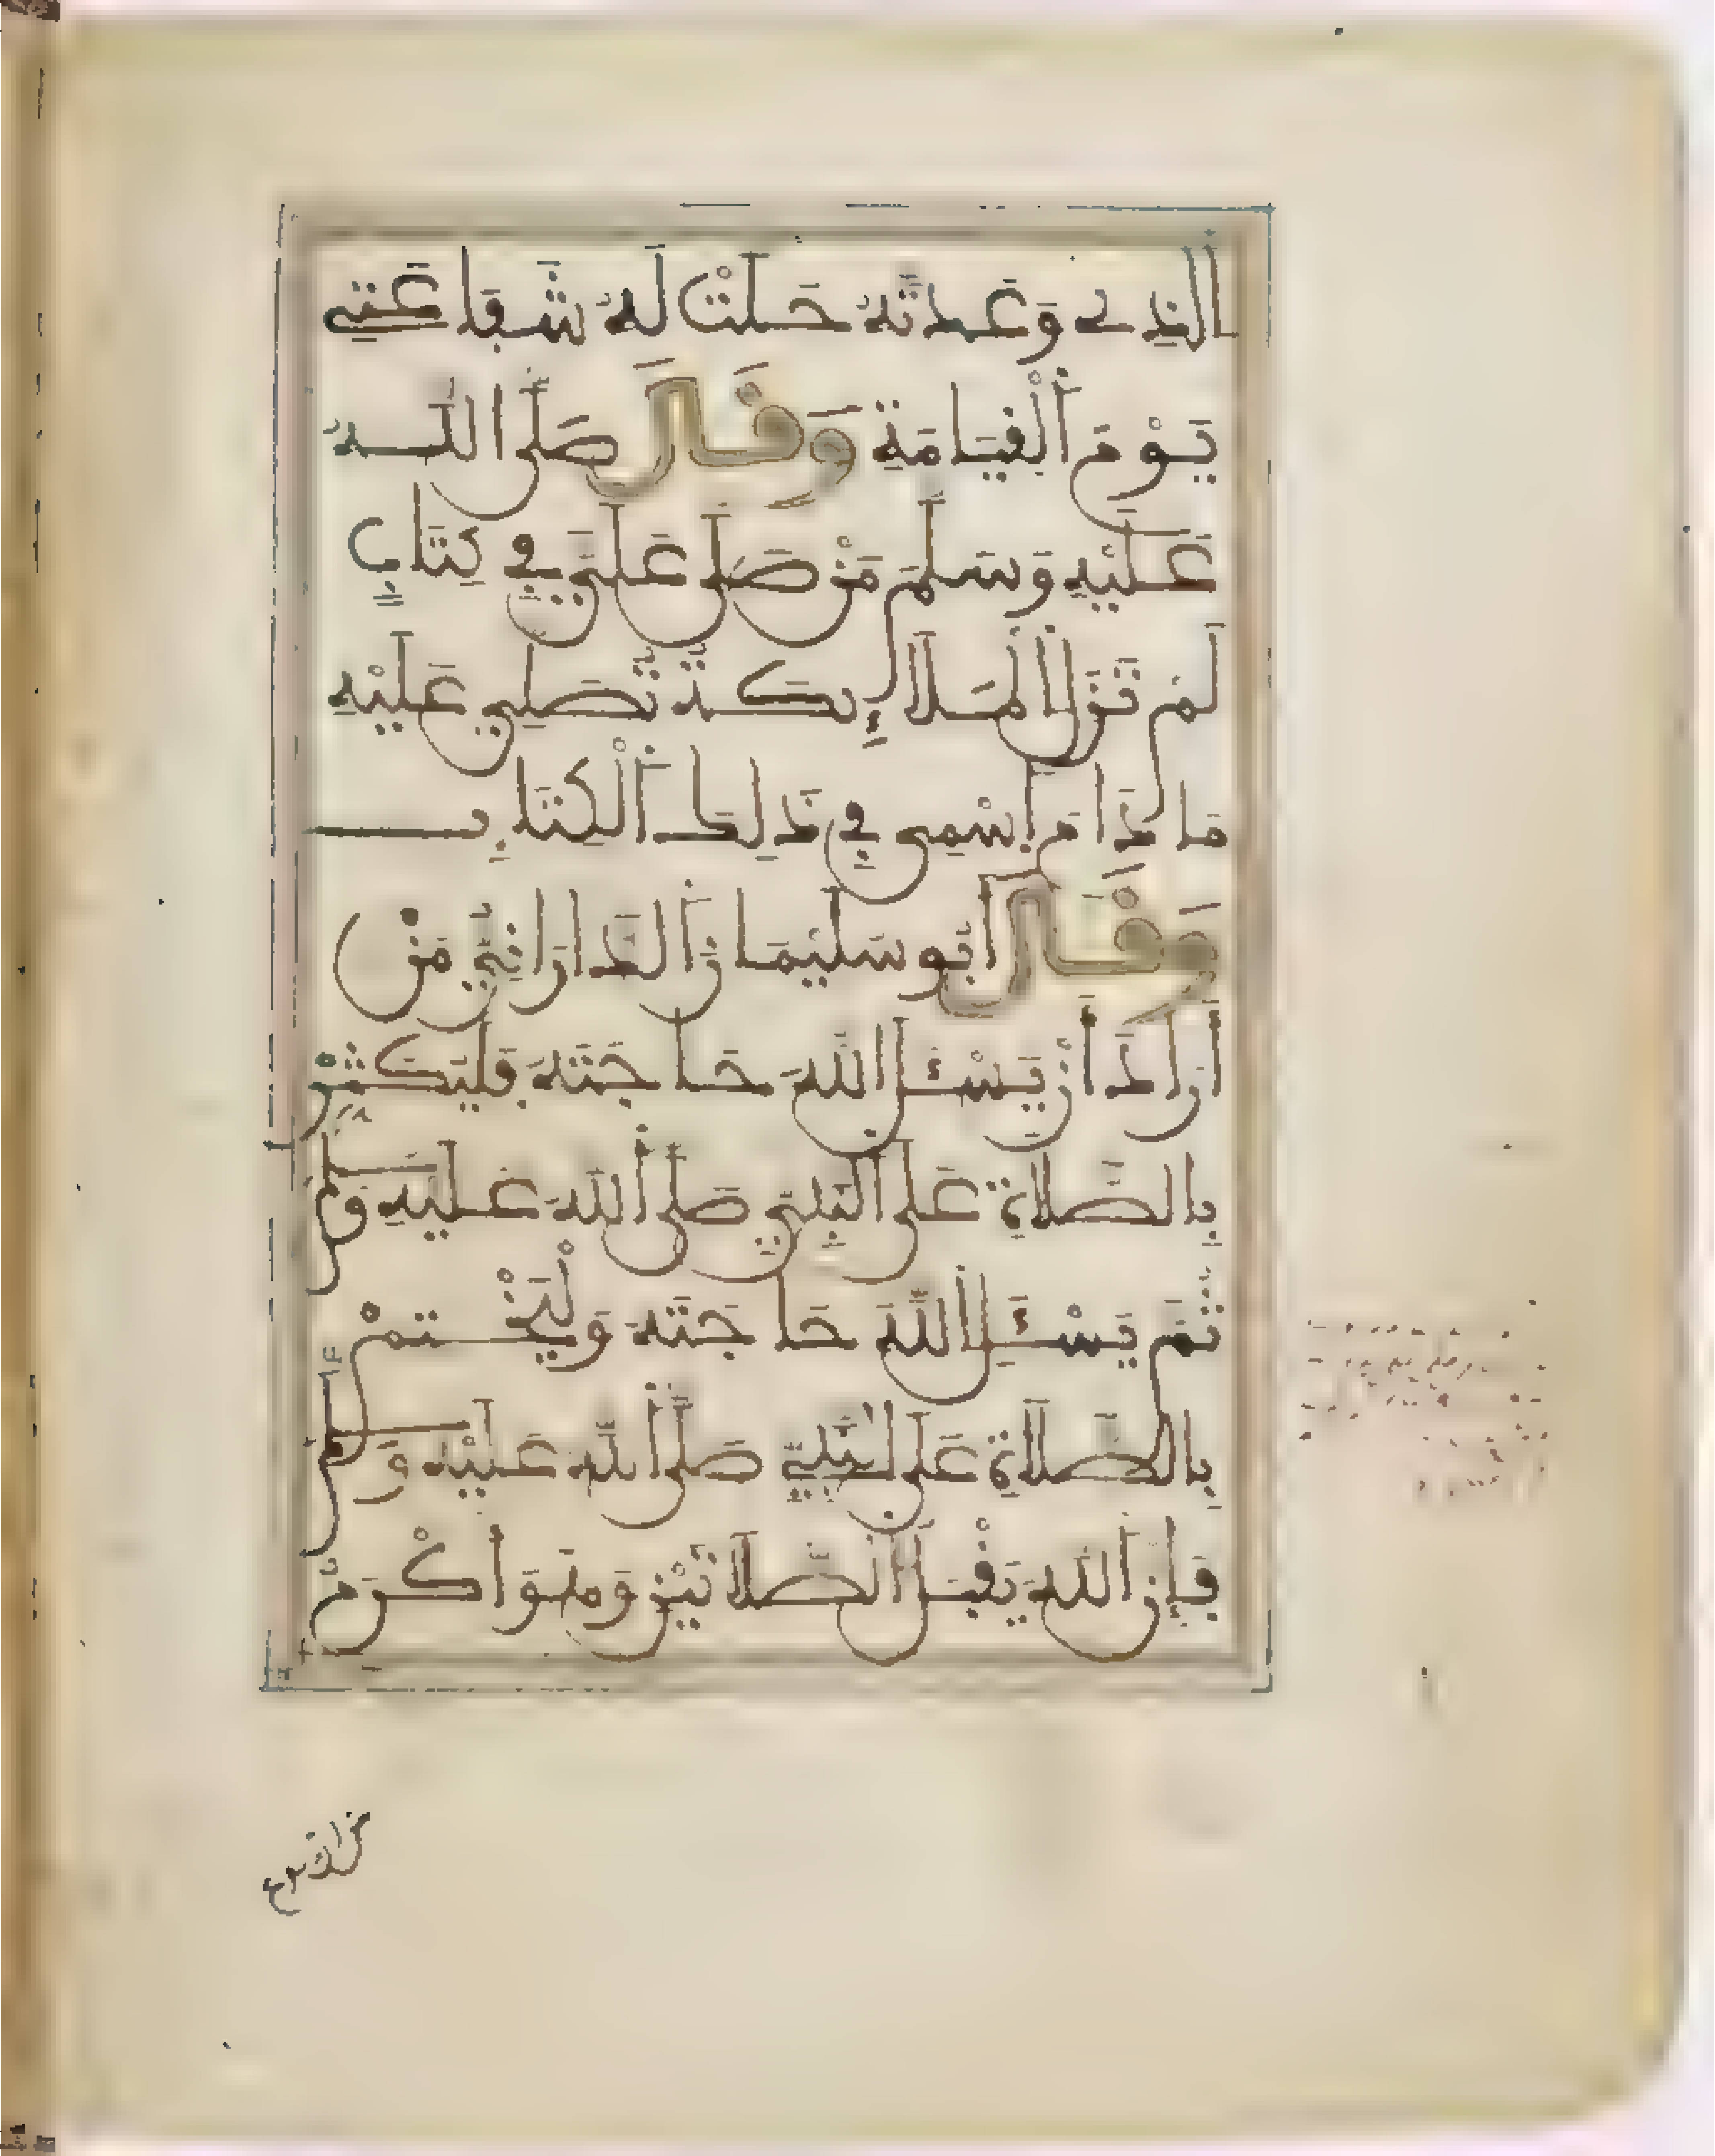 الذِے وَعَدتَّهُ حَلَّتْ لَهُ شَفَاعَتِي
يَوْمَ الْقِيَامَةِ وَقَالَ صَلَّى اللَّهُ
عَلَيْهِ وَسَلَّمَ مَنْ صَلَّى عَلَيَّ فِي كِتَابٍ
لَمْ تَزَلِ الْمَلَائِكَةُ تُصَلِّي عَلَيْهِ
مَا دَامَ اِسْمِي فِي ذَلِكَ الْكِتَابِ
وَقَالَ أَبُو سُلَيْمَانَ الدَّارَانِيُّ مَنْ
أَرَادَ أَنْ يَسْئَلَ اللَّهَ حَاجَتَهُ فَلْيُكْثِرْ
بِالصَّلَاةِ عَلَى النَّبِيِّ صَلَّى اللَّهُ عَلَيْهِ وَسَلَّمَ
ثُمَّ يَسْئَلِ اللَّهَ حَاجَتَهُ وَلْيَخْتِمْ
بِالصَّلَاةِ عَلَى النَّبِيِّ صَلَّى اللَّهُ عَلَيْهِ وَسَلَّمَ
فَإِنَّ اللَّهَ يَقْبَلُ الصَّلَاتَيْنِ وَهُوَ أَكْرَمُ
مِنْ أَنْ يَدَعَ